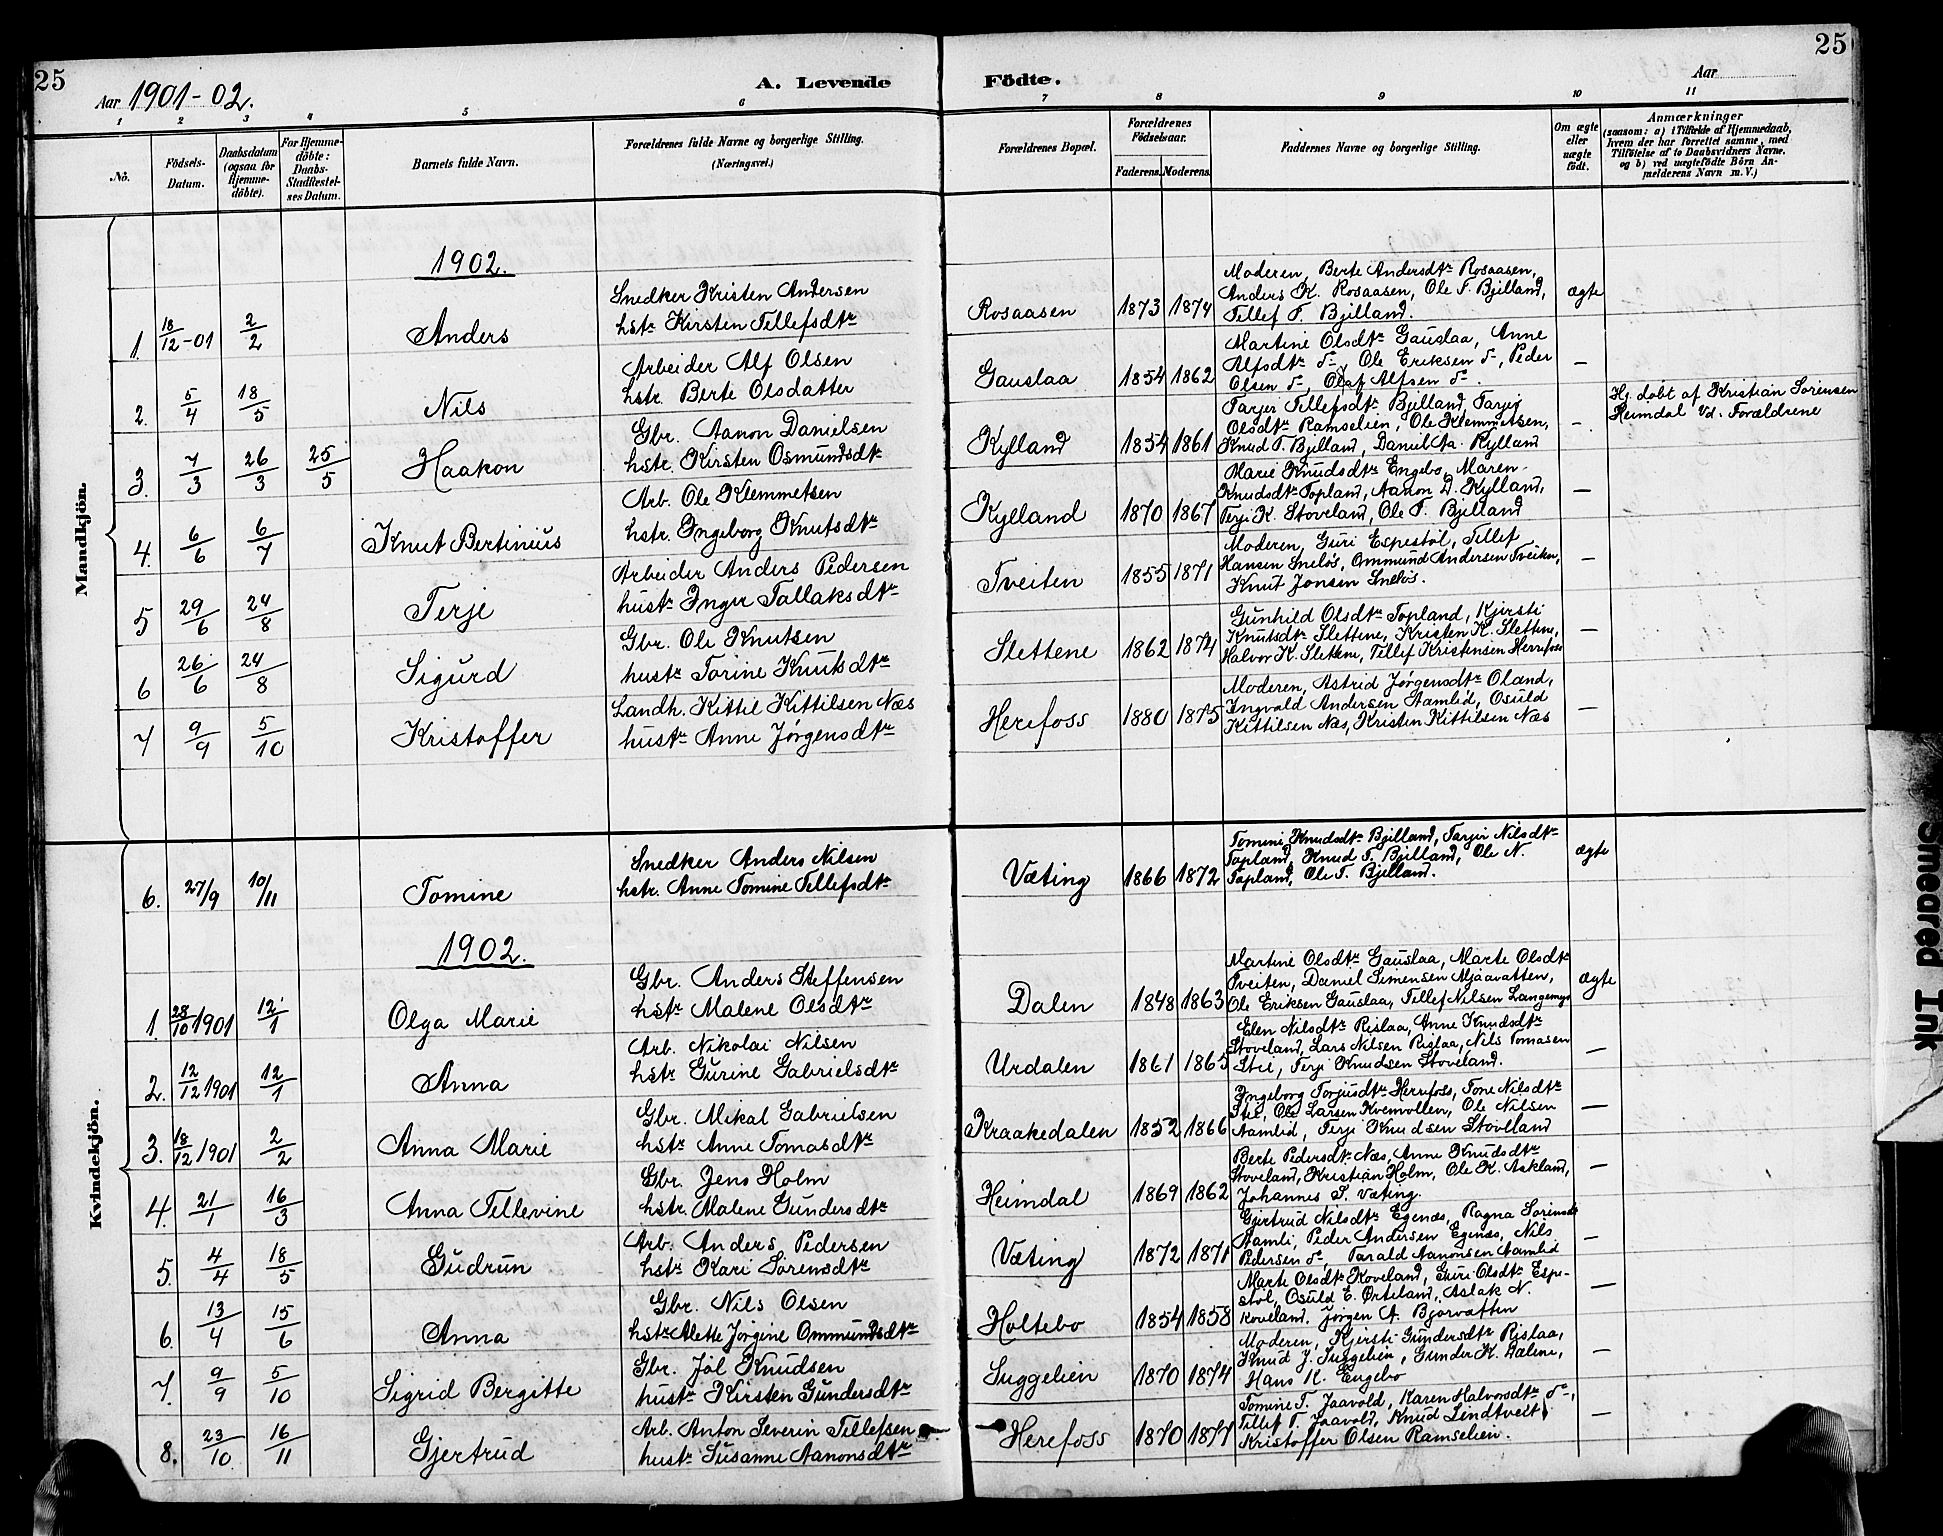 25
25
Aar 1901-02.
A. Levende Födte.
Aar
1 2 3 4 5 6 7 8 9 10 11
No.
Födsels-Datum.
Daabsdatum (ogsaa for Hjemme-döbte).
For Hjemme-döbte: Daabs-Stadfæstel-ses Datum.
Barnets fulde Navn.
Forældrenes fulde Navne og borgerlige Stilling.
(Næringsvei.)
Forældrenes Bopæl.
Forældrenes Födselsaar.
Faderens. Moderens.
Faddernes Navne og borgerlige Stilling.
Om ægte eller uægte födt.
Anmærkninger
(saasom: a) i Tilfælde af Hjemmedaab,
hvem der har forrettet samme, med
Tilföielse af to Daabsvidners Navne.
og b) ved uægtefödte Börn An-
melderens Navn m. V.)
Mandkjön.
1902.
1. 18/12-01 2/2 Anders
Snedker Kristen Andersen
hstr. Kirsten Tellefsdtr
Rosaasen 1873 1874
Moderen, Berte Andersdtr Rosaasen,
Anders K. Rosaasen, Ole T. Bjelland,
Tellef T. Bjelland.
ægte
2. 5/4 18/5 Nils
Arbeider Alf Olsen
hstr. Berte Olsdatter
Gauslaa 1854 1862
Martine Olsdtr Gauslaa, Anne
Alfsdtr do, Ole Eriksen do, Peder
Olsen do, Olaf Alfsen do.
—
3. 7/3 26/3 25/5 Haakon
Gbr. Aanon Danielsen
hstr. Kirsten Osmundsdtr
Kylland 1854 1861
Tarjer Tellefsdtr Bjelland, Tarjer
Olsdtr Ramselien, Ole Klemmetsen,
Knud T. Bjelland, Daniel Aa. Kylland
—
Hj. døbt af Kristian Sørensen
Heimdal Vd. Forældrene
4. 6/6 6/7 Knut Bertinius
Arb. Ole Klemmetsen
hstr. Ingeborg Knutsdtr
Kylland 1870 1867
Marie Knudsdtr Engebo, Maren
Knudsdtr Topland, Aanon D. Kylland,
Terje K. Stoveland, Ole T. Bjelland
—
5 29/6 24/8 Terje
Arbeider Anders Pedersen
hustr Inger Tallaksdtr
Tveiten 1855 1871
Moderen, Guri Espestøl, Tellef
Hansen Sneløs, Ommund Andersen Tveiten,
Knut Jonsen Sneløs.
—
6 26/6 24/8 Sigurd
Gbr. Ole Knutsen
hustr Torine Knutsdtr
Slettene 1862 1874
Gunhild Olsdtr Topland, Kjersti
Knutsdtr Slettene, Kristen K. Slettene,
Halvor K. Slettene, Tellef Kristensen Herrefoss
—
7 9/9 5/10 Kristoffer
Landh. Kittil Kittilsen Næs
hustr Anne Jørgensdtr
Herefoss 1880 1875
Moderen, Astrid Jørgensdtr Øland,
Ingvald Andersen Aamlid, Osuld
Kittilsen Næs, Kristen Kittilsen Næs
—
Kvindekjön.
6. 27/9 10/11 Tomine
Snedker Anders Nilsen
hstr. Anne Tomine Tellefsdtr
Væting 1866 1872
Tomine Knudsdtr Bjelland, Tarjer Nilsdtr
Topland, Knud T. Bjelland, Ole N.
Topland, Ole T. Bjelland.
ægte
1902.
1. 28/10 1901 12/1 Olga Marie
Gbr. Anders Steffensen
hstr Malene Olsdtr
Dalen 1848 1863
Martine Olsdtr Gauslaa, Marte Olsdtr
Tveiten, Daniel Simensen Mjaavatten,
Ole Eriksen Gauslaa, Tellef Nilsen Langemyr
ægte
2. 12/12 1901 12/1 Anna
Arb. Nikolai Nilsen
hstr Gurine Gabrielsdtr
Urdalen 1861 1865
Elen Nilsdtr Rislaa, Anne Knudsdtr
Stoveland, Lars Nilsen Rislaa, Nils Tomasen
Stie, Terje Knudsen Stoveland.
—
3. 18/12 1901 2/2 Anna Marie
Gbr. Mikal Gabrielsen
hstr Anne Tomasdtr
Kraakedalen 1852 1866
Ingeborg Torjusdtr Herrefoss, Tone Nilsdtr
Stie, Ole Larsen Kvernvollen, Ole Nilsen
Aamlid, Terje Knudsen Stoveland
—
4. 21/1 16/3 Anna Tellevine
Gbr. Jens Holm
hstr. Malene Gundersdtr
Heimdal 1869 1862
Berte Pedersdtr Næs, Anne Knudsdtr
Stoveland, Kristian Holm, Ole K. Askland,
Johannes S. Væting.
—
5. 4/4 18/5 Gudrun
Arb. Anders Pedersen
hstr Kari Sørensdtr
Væting 1872 1871
Gjertrud Nilsdtr Egenæs, Ragna Sørensdtr
Aamli, Peder Andersen Egenæs, Nils
Pedersen do, Tarald Aanonsen Aamlid
—
6. 13/4 15/6 Anna
Gbr. Nils Olsen
hstr Alette Jørgine Ommundsdtr
Holtebo 1854 1858
Marte Olsdtr Hoveland, Guri Olsdtr Espe-
støl, Osuld E. Ørteland, Aslak N.
Hoveland, Jørgen A. Bjorvatten
—
7. 9/9 5/10 Sigrid Bergitte
Gbr. Jøl Knudsen
hustr Kirsten Gundersdtr
Suggelien 1870 1874
Moderen, Kjersti Gundersdtr Rislaa,
Knud J. Suggelien, Gunder K. Dalene,
Hans K. Engebo
—
8. 23/10 16/11 Gjertrud
Arb. Anton Severin Tellefsen
hustr Susanne Aanonsdtr
Herefoss 1870 1877
Tomine T. Jaavold, Karen Halvorsdtr do,
Tellef T. Jaavold, Knud Lindtveit,
Kristoffer Olsen Ramselien.
—
Smeared Ink